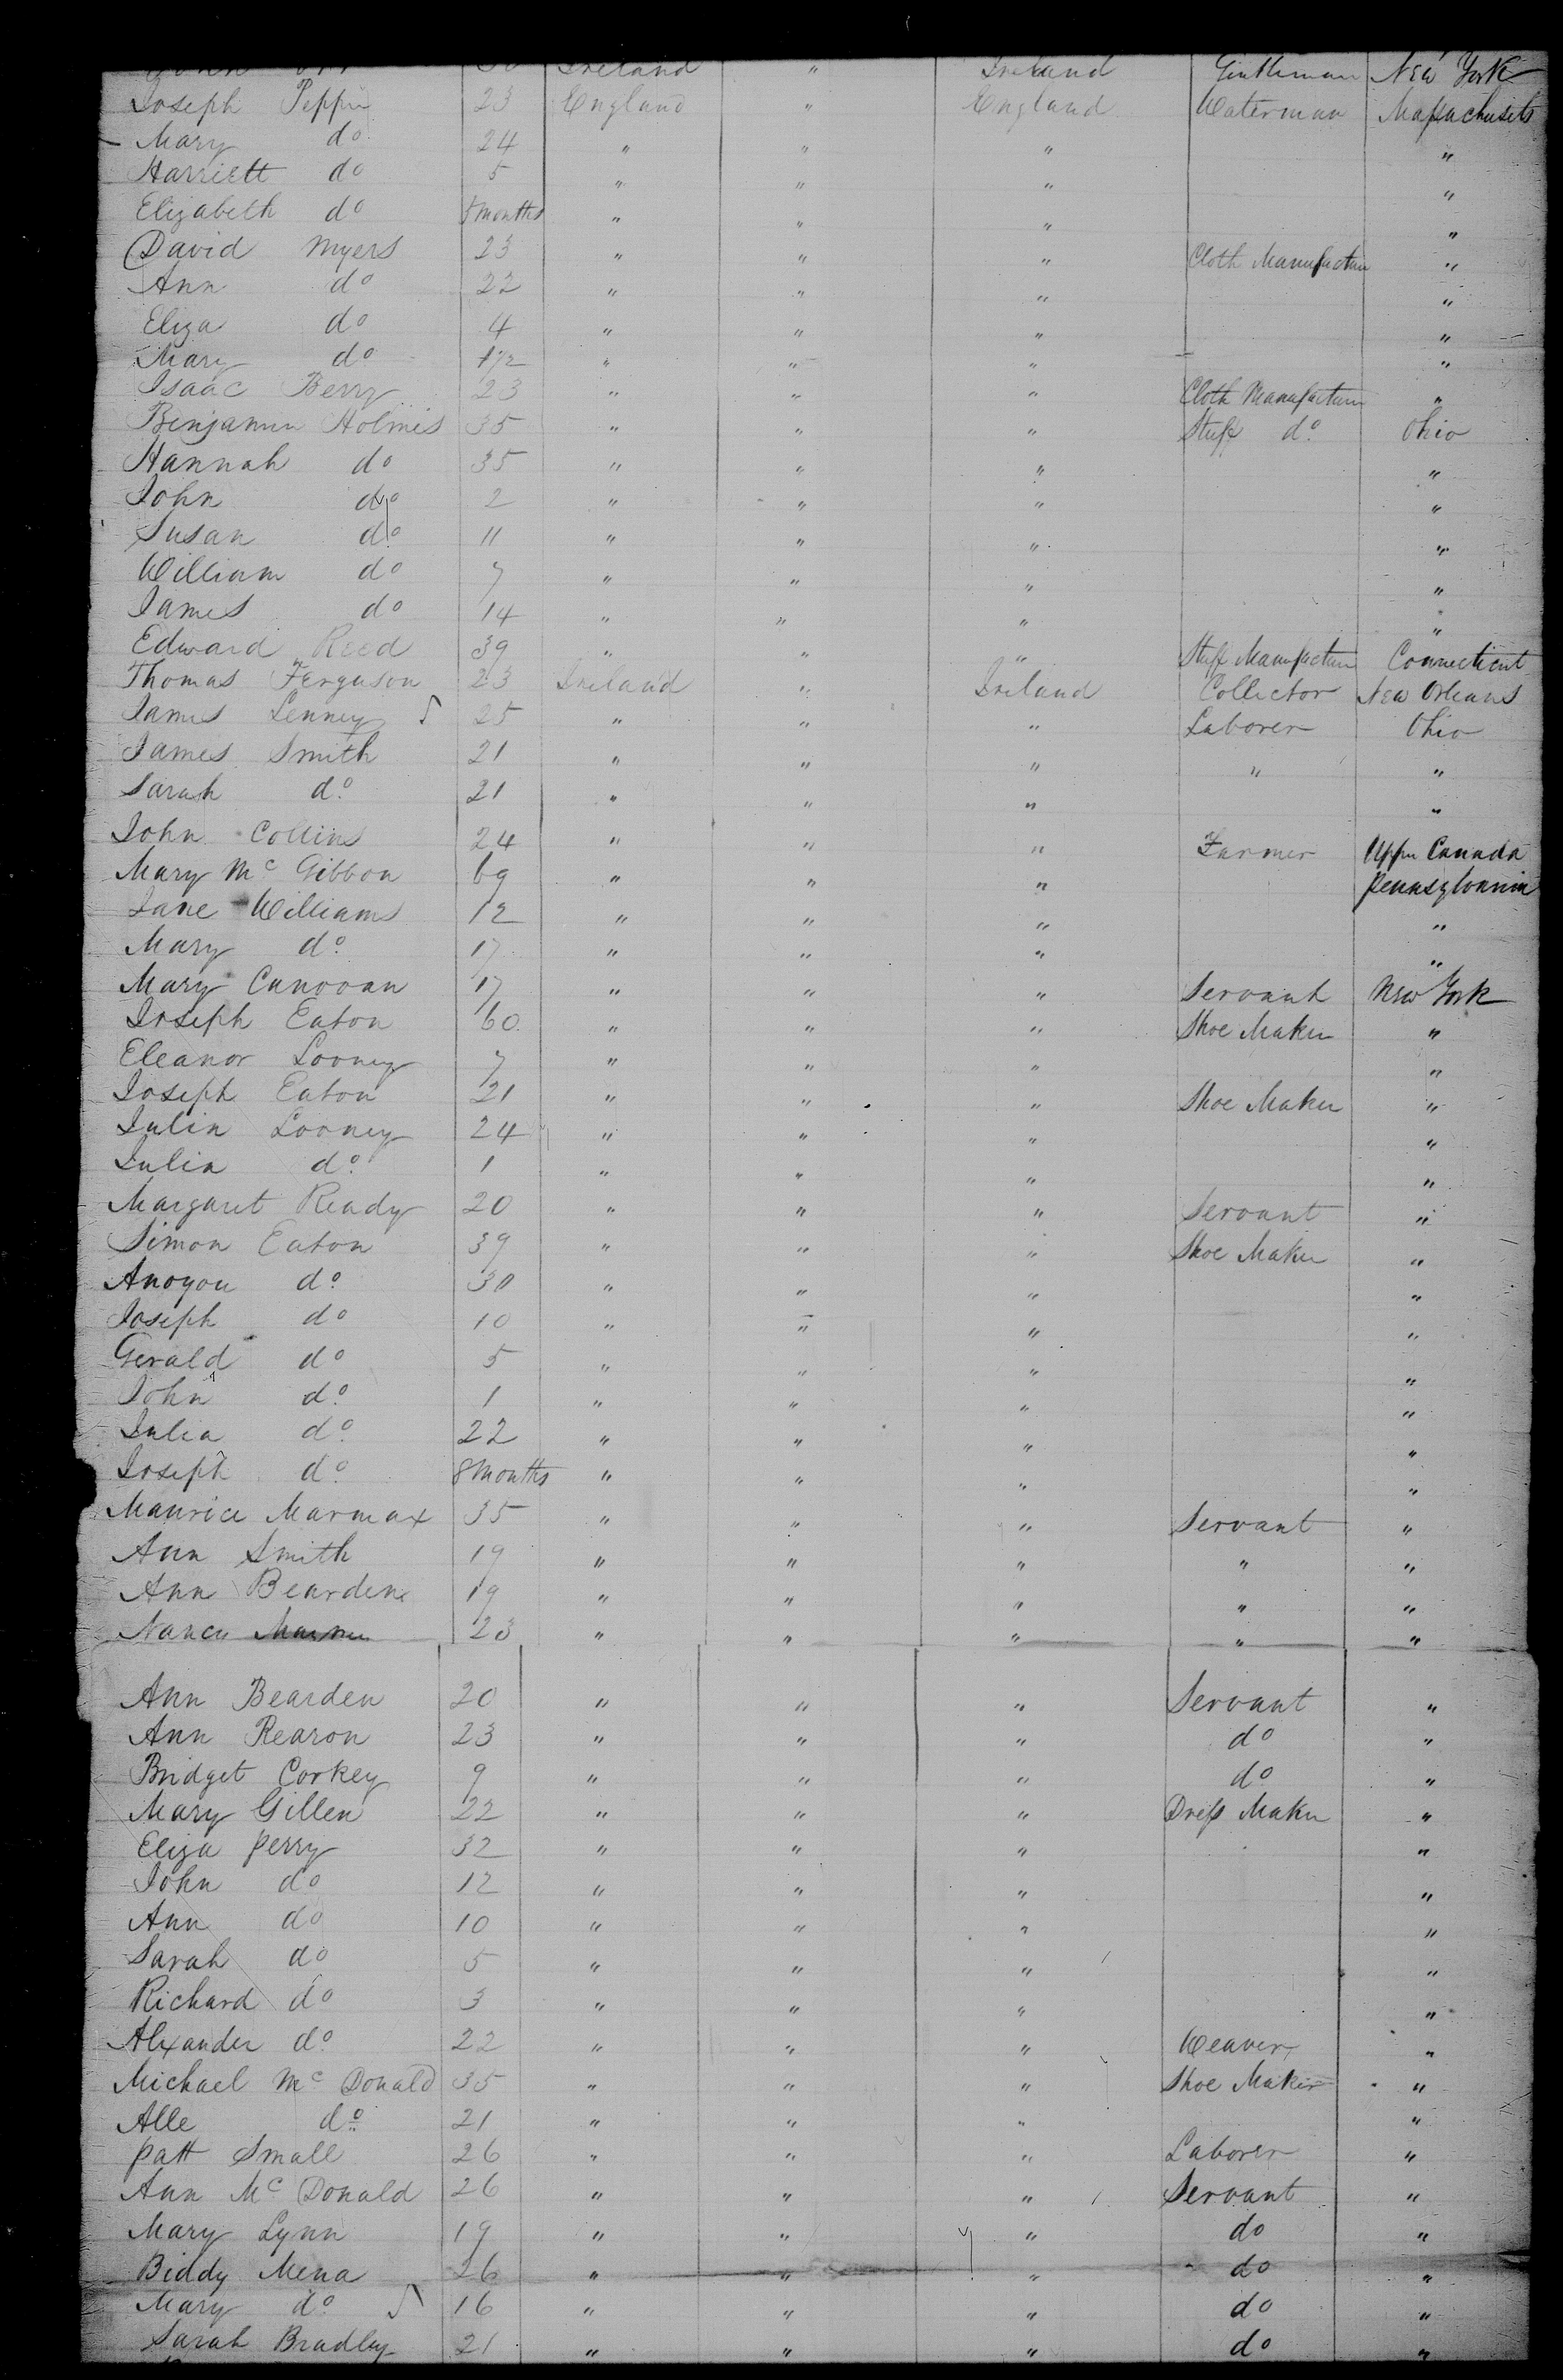 Ireland " Ireland Gentleman New York
Joseph Peppin 23 England " England Waterman Massachusets
Mary do 24 " " " "
Harriett do 5 " " " "
Elizabeth do 8 months " " " "
David Myers 23 " " " Cloth Manufactur "
Ann do 22 " " " "
Eliza do 4 " " " "
Mary do 1/2 " " " "
Isaac Berry 23 " " " Cloth Manufactur "
Benjamin Holmes 35 " " " Stuff do Ohio
Hannah do 35 " " " "
John do 2 " " " "
Susan do 11 " " " "
William do 7 " " " "
James do 14 " " " "
Edward Reed 39 " " " Stuff Manufactur Connecticut
Thomas Ferguson 23 Ireland " Ireland Collector New Orleans
James Lenney 25 " " " Laborer Ohio
James Smith 21 " " " " "
Sarah do 21 " " " "
John Collins 24 " " " Farmer Upper Canada
Mary Mc Gibbon 69 " " " Pennsylvania
Jane Williams 12 " " " "
Mary do 17 " " " "
Mary Canovan 17 " " " Servant New York
Joseph Eaton 60 " " " Shoe Maker "
Eleanor Looney 7 " " " "
Joseph Eaton 21 " " " Shoe Maker "
Julia Looney 24 " " " "
Julia do 1 " " " "
Margaret Ready 20 " " " Servant "
Simon Eaton 39 " " " Shoe Maker "
Anoyou do 30 " " " "
Joseph do 10 " " " "
Gerald do 5 " " " "
John do 1 " " " "
Julia do 22 " " " "
Joseph do 8 months " " " "
Maurice Marmax 35 " " " Servant "
Ann Smith 19 " " " " "
Ann Bearden 19 " " " " "
Nancy 23 " " " " "
Ann Bearden 20 " " " Servant "
Ann Rearon 23 " " " do "
Bridget Corkey 9 " " " do "
Mary Gillen 22 " " " Dress Maker "
Eliza Perry 32 " " " "
John do 12 " " " "
Ann do 10 " " " "
Sarah do 5 " " " "
Richard do 3 " " " "
Alexander do 22 " " " Weaver "
Michael Mc Donald 35 " " " Shoe Maker "
Alle do 21 " " " "
Patt Small 26 " " " Laborer "
Ann Mc Donald 26 " " " Servant "
Mary Lynn 19 " " " do "
Biddy Mena 26 " " " do "
Mary do 16 " " " do "
Sarah Bradley 21 " " " do "